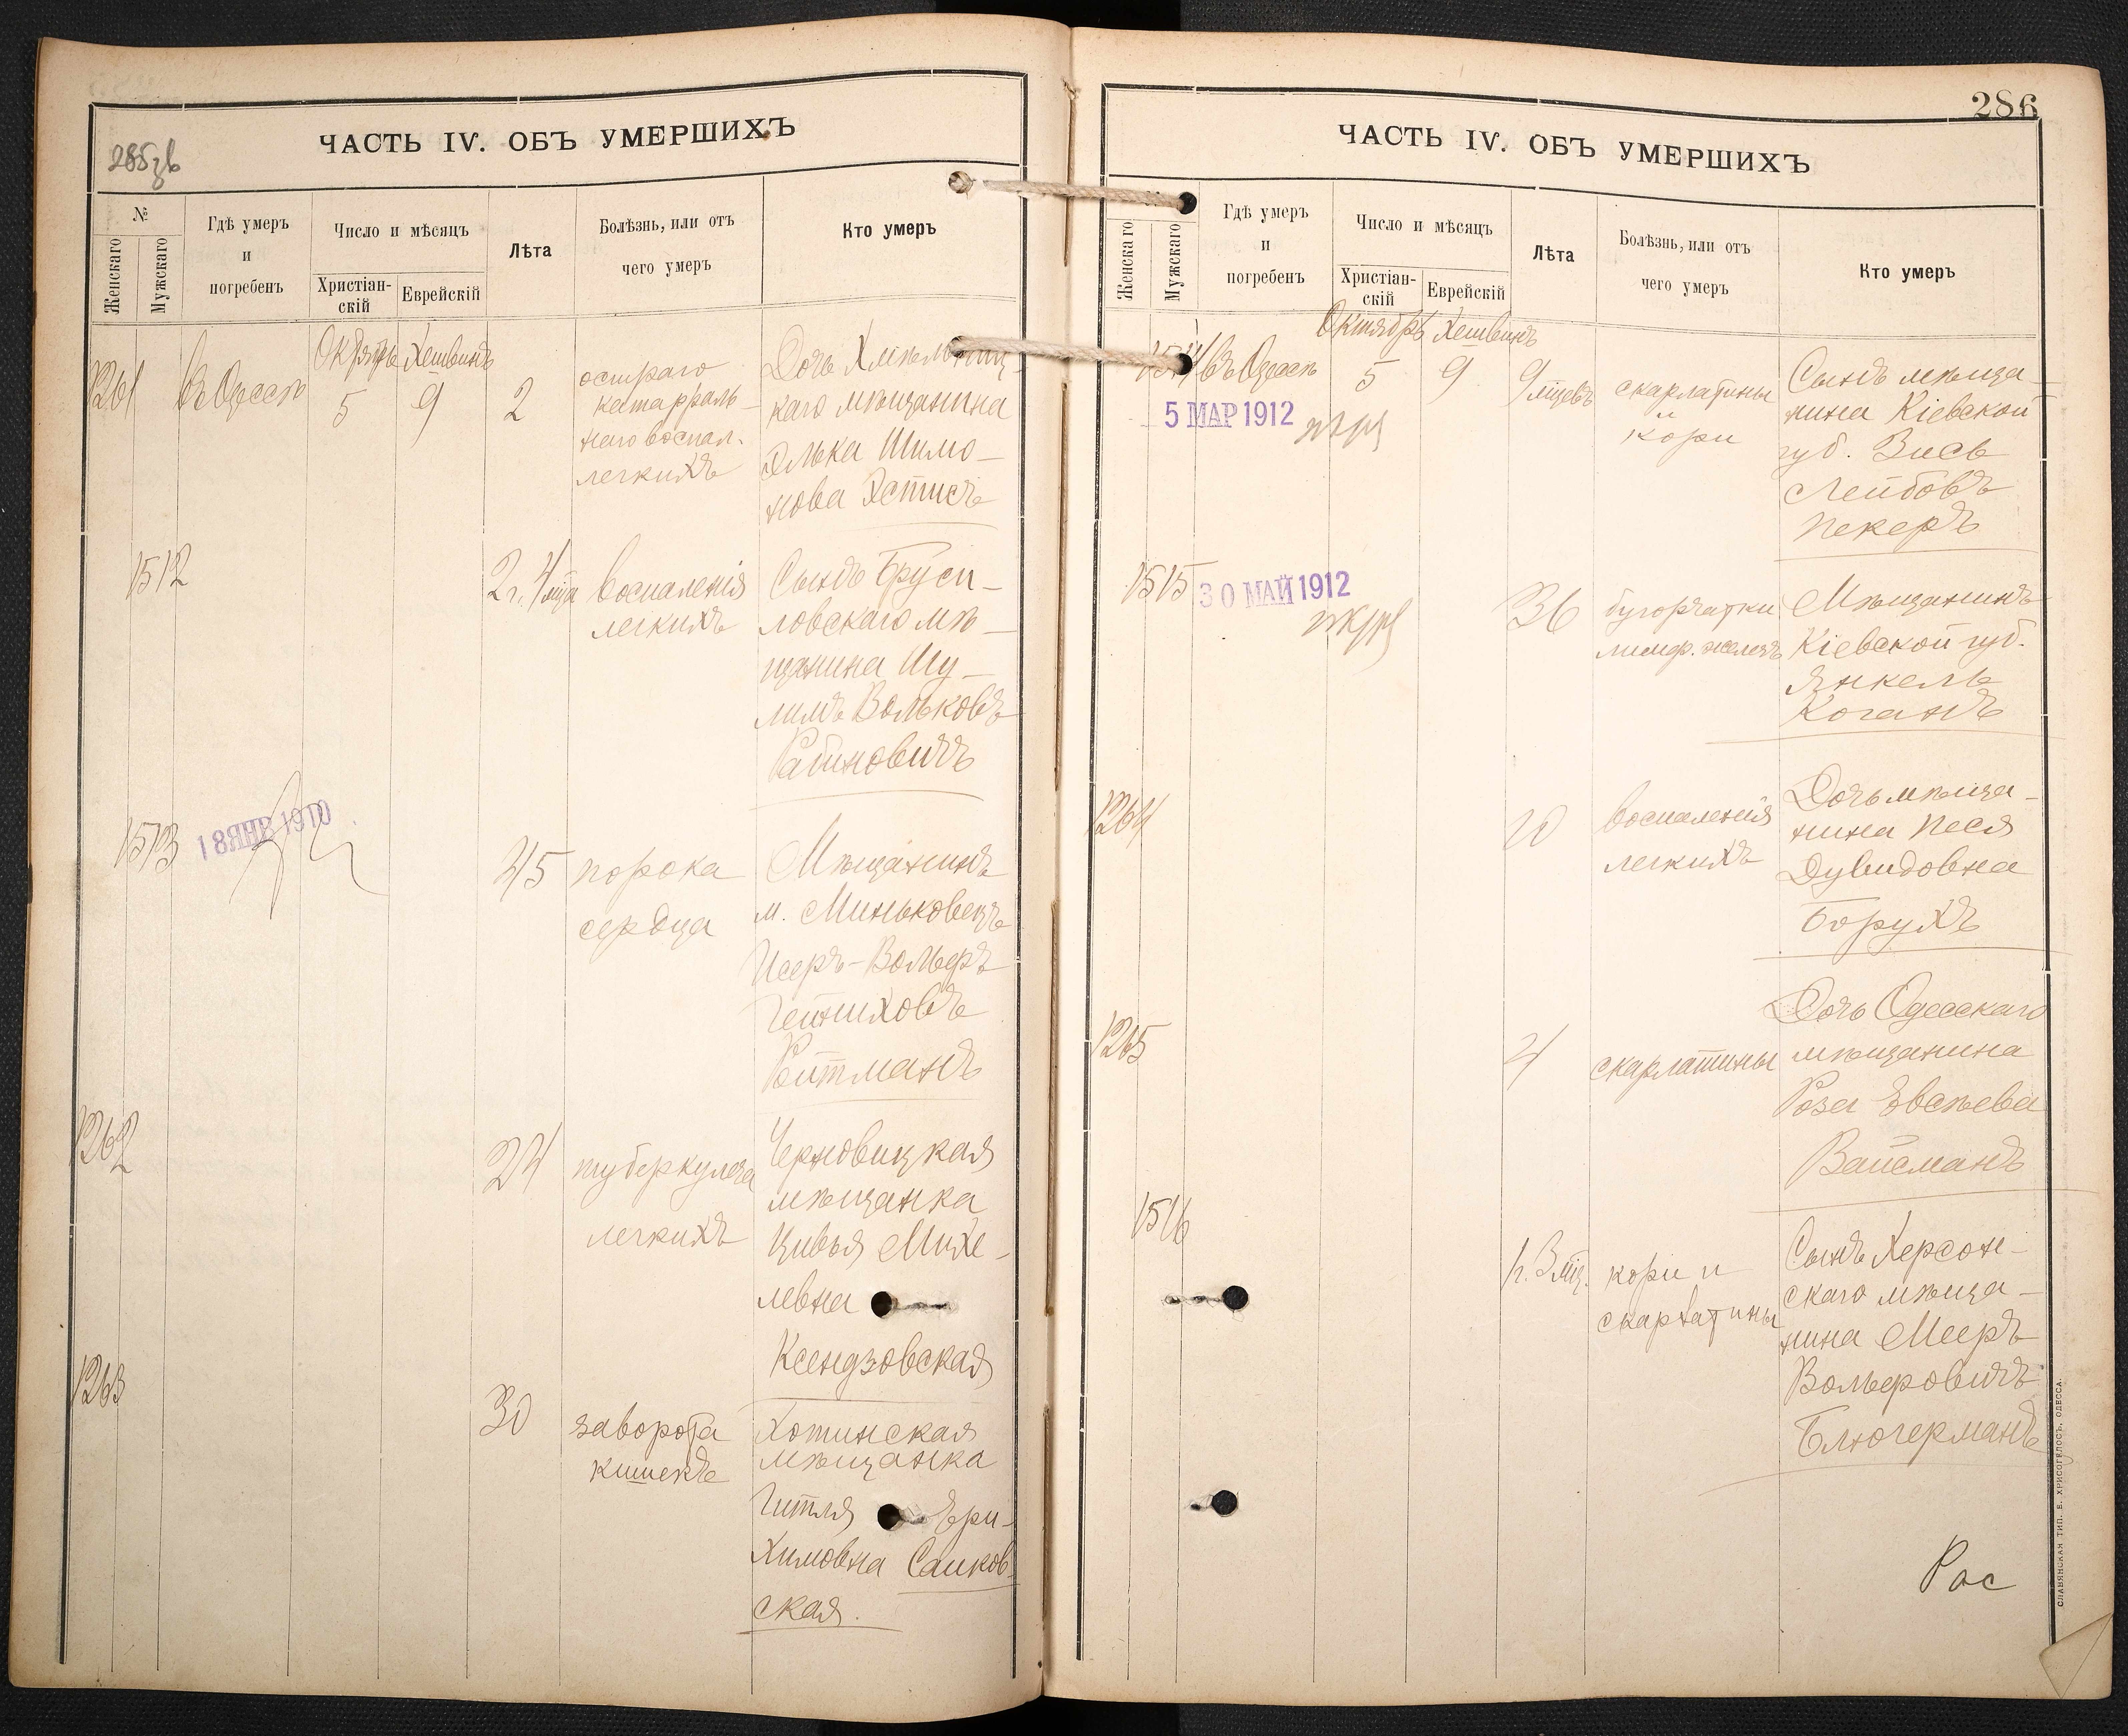 ЧАСТЬ IV. ОБЪ УМЕРШИХЪ
№
Женскаго
Мужскаго
Гдѣ умеръ
и
погребенъ
Число и мѣсяцъ
Христіан-
скій
Еврейскій
Лѣта
Болѣзнь, или отъ
чего умеръ
Кто умеръ
1261
въ Одессѣ
5
9
2
остраго
катарраль-
наго воспал.
легкихъ
Дочь
каго мѣщанина
Элька Шимо-
нова
1512
2 г. 4 мца
воспаленія
легкихъ
Сынъ Бруси-
ловскаго мѣ-
щанина Шу-
лимъ Вольковъ
Рабиновичъ
1513
18 ЯНВ 1910
45
порока
сердца
Мѣщанинъ
м. Миньковецъ
Исеръ-Вольфъ
Ройтманъ
1262
24
туберкулеза
легкихъ
Черновицкая
мѣщанка
Цивья Михе-
левна
Ксендзовская
1263
30
заворота
кишекъ
Хотинская
мѣщанка
Гитля Ери-
химовна
ская.
286
ЧАСТЬ IV. ОБЪ УМЕРШИХЪ
Женскаго
Мужскаго
Гдѣ умеръ
и
погребенъ
Число и мѣсяцъ
Христіан-
скій
Еврейскій
Лѣта
Болѣзнь, или отъ
чего умеръ
Кто умеръ
Октябрь Хешвинъ
1514
въ Одессѣ
5
9
9 мцевъ
скарлатины
и
кори
Сынъ мѣща-
нина Кіевской
губ. Зись
Лейбовъ
Пекеръ
5 МАР 1912
1515
30 МАЙ 1912
36
бугорчатки
лимф. железъ
Мѣщанинъ
Кіевской губ.
Янкель
Коганъ
1264
20
воспаленія
легкихъ
Дочь мѣща-
нина Песя
Дувидовна
Борухъ
1265
4
скарлатины
Дочь Одесскаго
мѣщанина
Роза Евсѣева
Вайсманъ
1516
1 г. 3 мц.
кори и
скарлатины
Сынъ Херсон-
скаго мѣща-
нина Мееръ
Вольфовичъ
Блюгерманъ
СЛАВЯНСКАЯ ТИП. Е. ХРИСОГЕЛОСЪ, ОДЕССА.